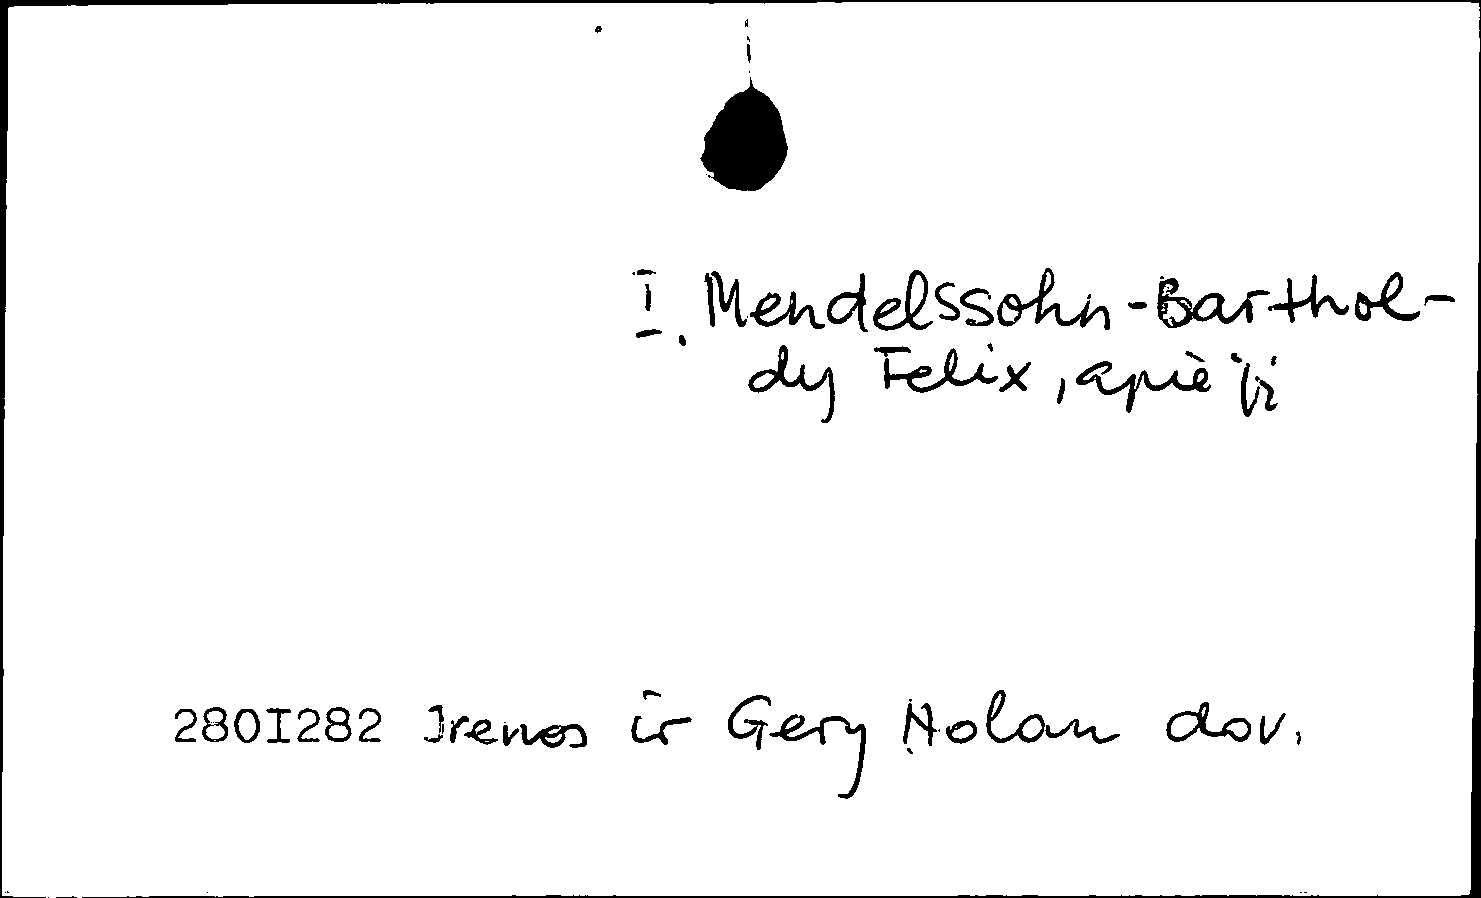 I. Mendelssohn-Barthol-
dy Felix, apie jį
280I282 Irenos ir Gery Nolan dov.